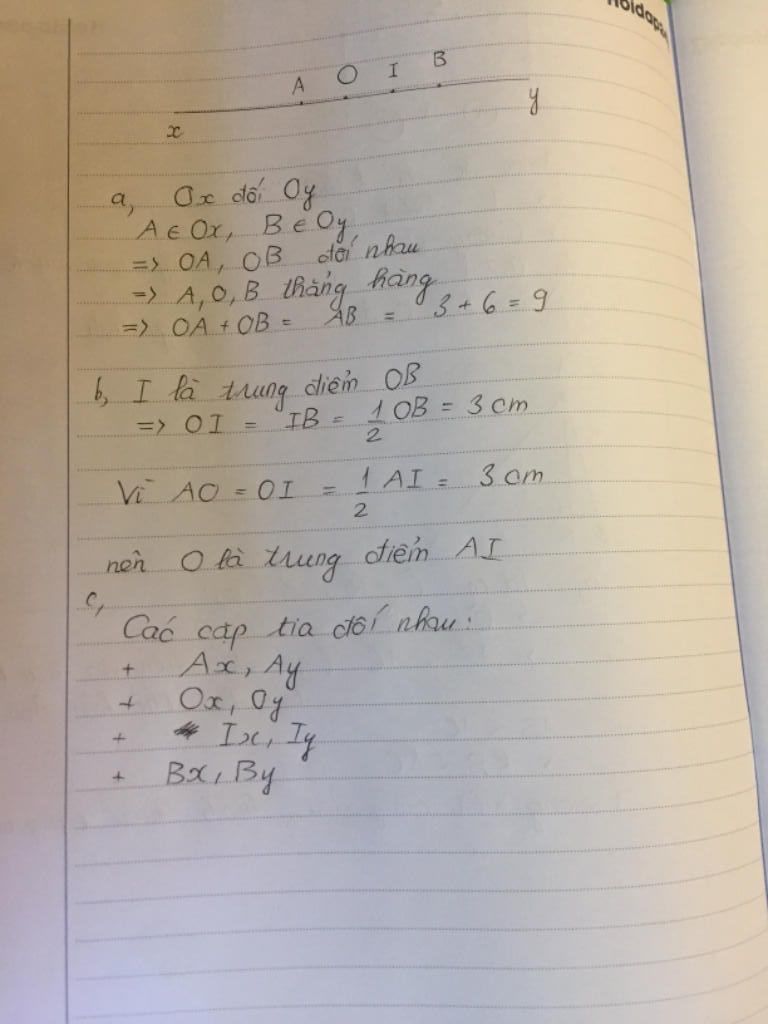 Hoidap
A O I B
x y
a, Ox đối Oy
A ∈ Ox, B ∈ Oy
=> OA, OB đối nhau
=> A, O, B thẳng hàng
=> OA + OB = AB = 3 + 6 = 9
b, I là trung điểm OB
=> OI = IB = 1/2 OB = 3 cm
Vì AO = OI = 1/2 AI = 3 cm
nên O là trung điểm AI
c,
Các cặp tia đối nhau:
+ Ax, Ay
+ Ox, Oy
+ Ix, Iy
+ Bx, By